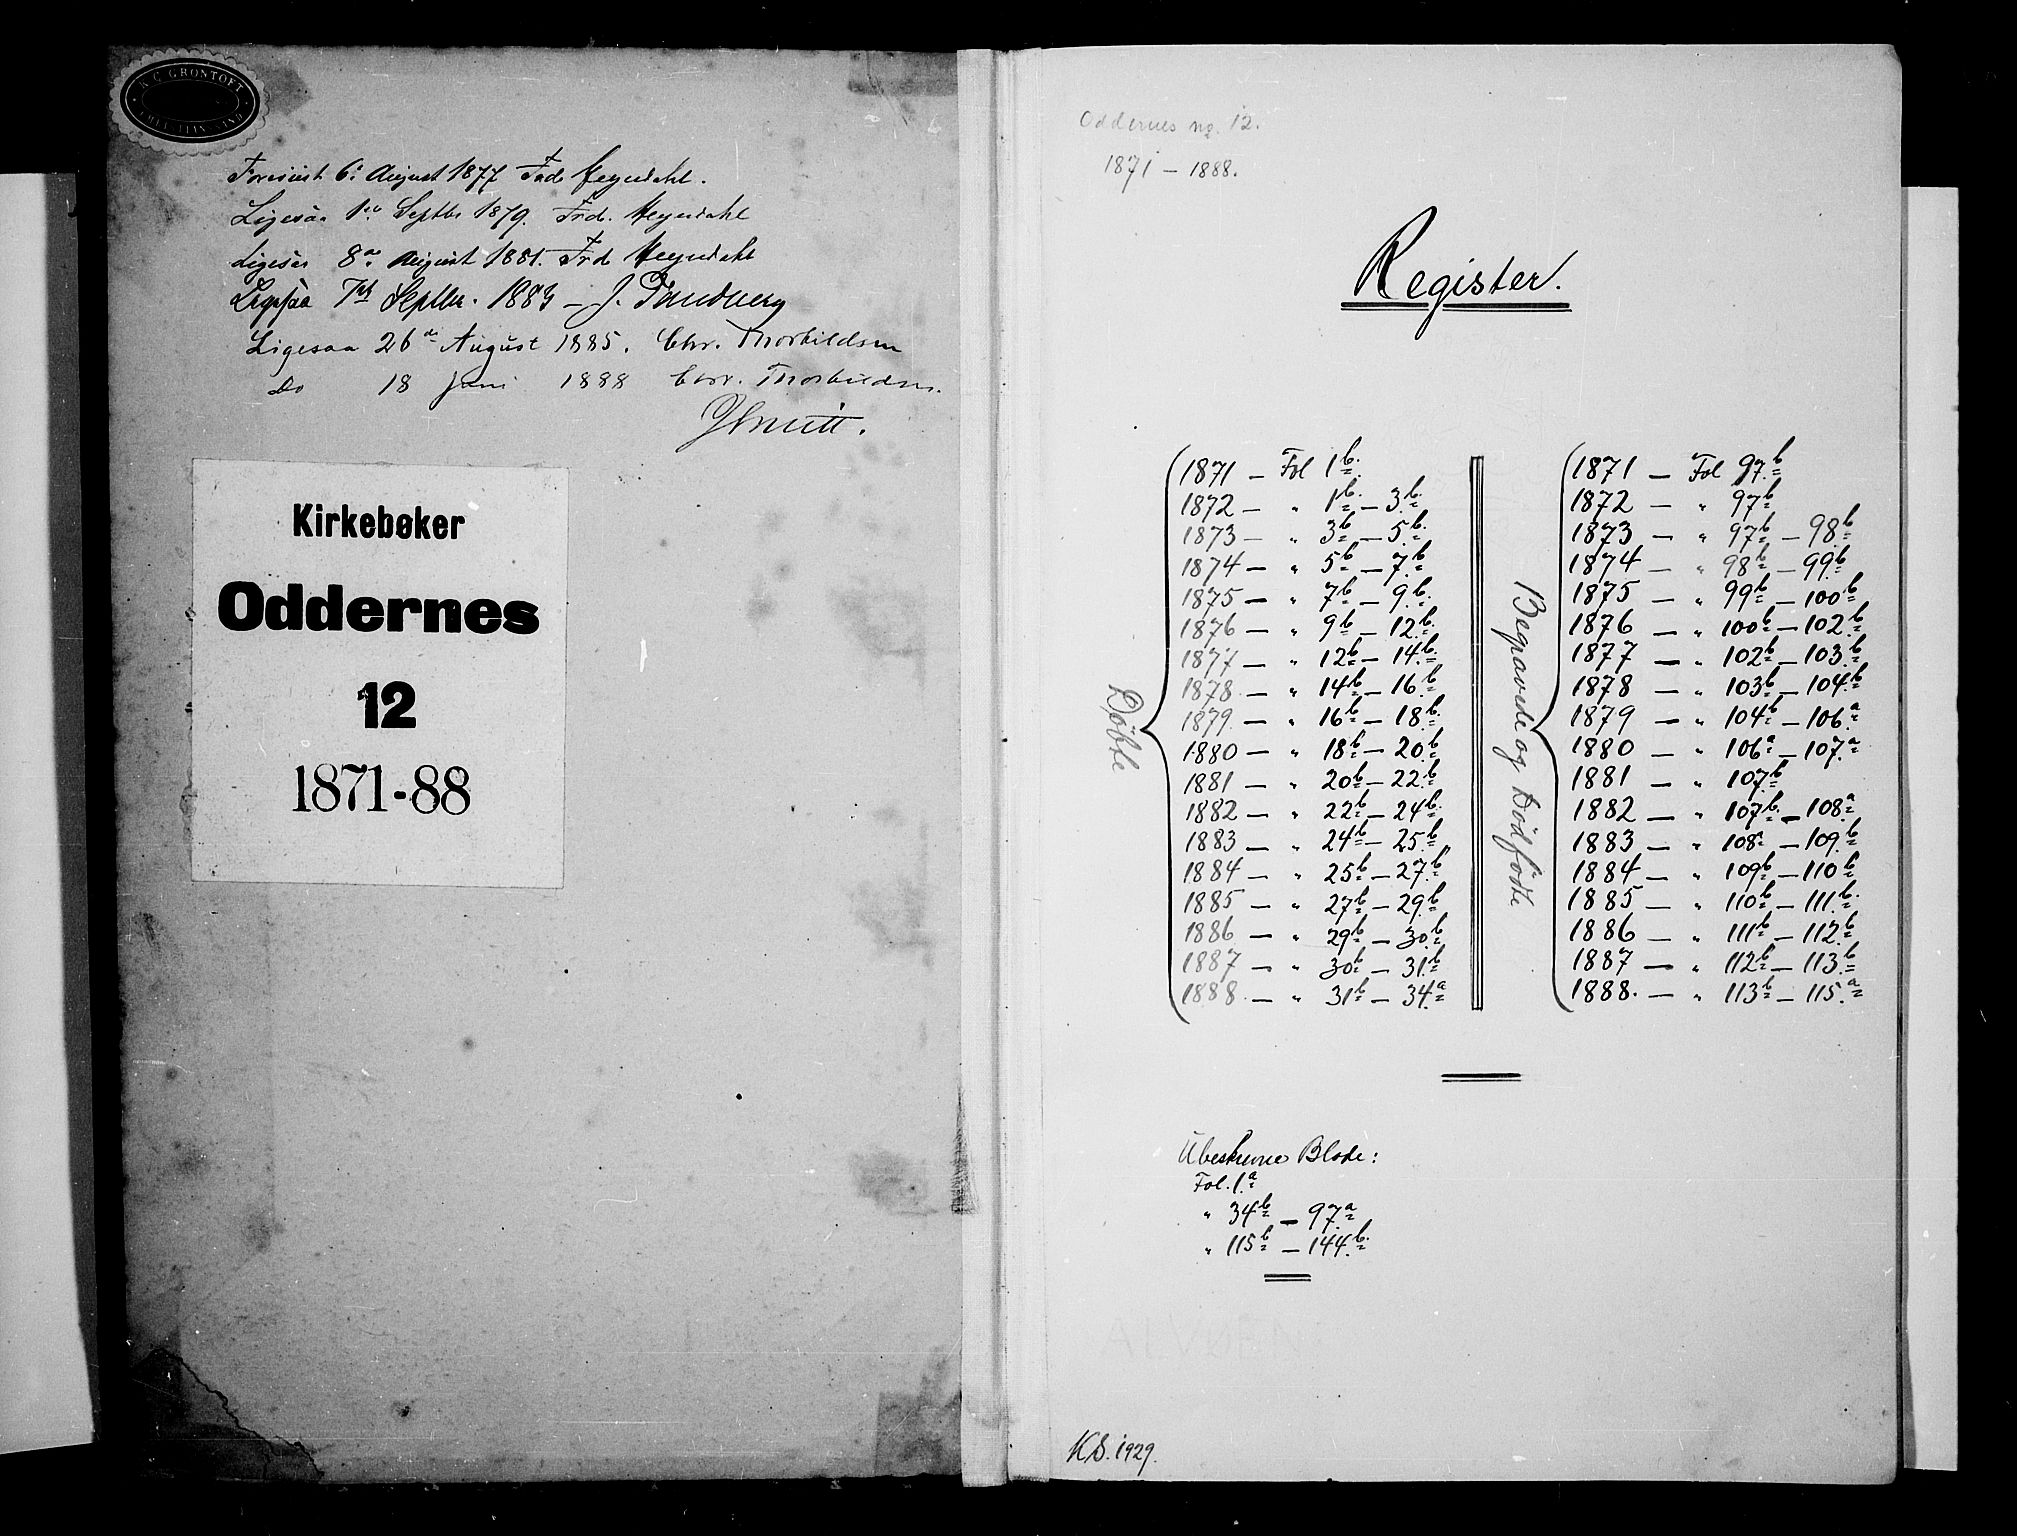 K. C. GRØNTOFT
CHRISTIANSSAND
Forevist 6' August 1877 Frd Heyerdahl.
Ligesaa 1ste Septbr 1879. Frd. Heyerdahl
Ligesaa 8de August 1881. Frd Heyerdahl
Ligesaa 7de Septbr. 1883 – J. Sandberg
Ligesaa 26de August 1885. Chr. Thorkildsen
Do 18 Juni 1888 Chr. Thorkildsen.
Kirkebøker
Oddernes
12
1871-88
Oddernes nr. 12.
1871 – 1888.
Register.
Døbte
1871 – Fol 1b.
1872 – " 1b. – 3b.
1873 – " 3b – 5b.
1874 – " 5b – 7b
1875 – " 7b – 9b.
1876 – " 9b – 12b.
1877 – " 12b – 14b.
1878 – " 14b – 16b
1879. – " 16b – 18b.
1880 – " 18b – 20b
1881 – " 20b – 22b
1882 – " 22b – 24b.
1883 – " 24b – 25b
1884 – " 25b – 27b
1885 – " 27b – 29b
1886 – " 29b – 30b
1887 – " 30b – 31b
1888. – " 31b – 34a
Begravede og Dødfødte
1871 – Fol 97b
1872 – " 97b
1873 – " 97b – 98b
1874 – " 98b – 99b
1875 – " 99b – 100b
1876 – " 100b – 102b
1877 – " 102b – 103b
1878 – " 103b – 104b
1879 – " 104b – 106a
1880 – " 106a – 107a
1881 – " 107b
1882 – " 107b. – 108a
1883 – " 108a – 109b
1884 – " 109b – 110b
1885 – " 110b – 111b.
1886 – " 111b – 112b
1887 – " 112b – 113b
1888. – " 113b – 115a
Ubeskrevne Blade:
Fol. 1a
" 34b – 97a
" 115b – 144b.
ALVØEN
KS. 1929.